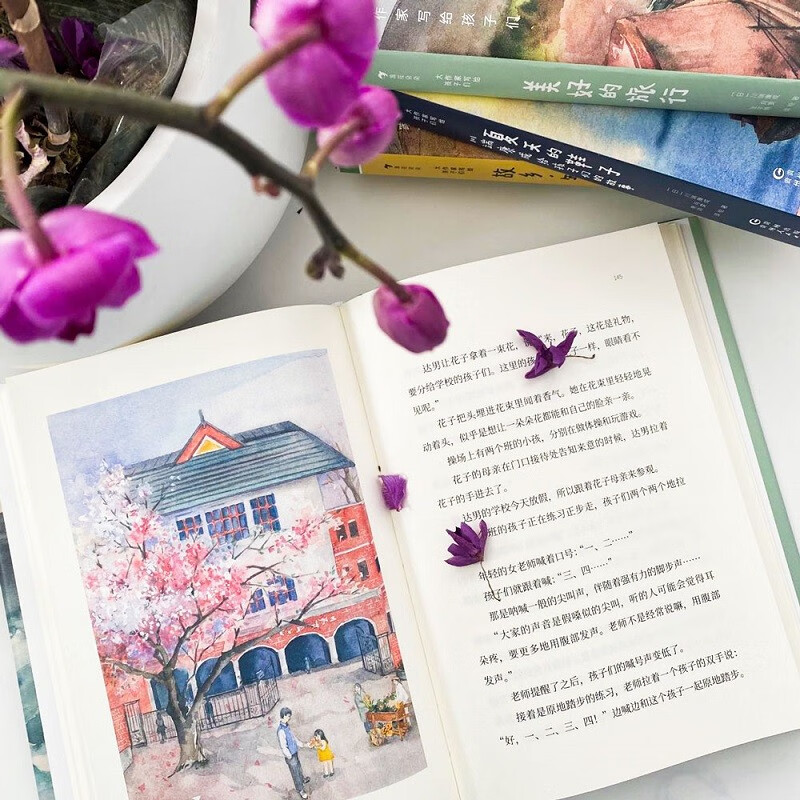 作家写给孩子们
大作家写给孩子们
美好的旅行
大作家写给孩子们
夏天的鞋子
川端康成给孩子们的故事
故乡
145
达男让花子拿着一束花，说“来，花子，这花是礼物，
要分给学校的孩子们。这里的孩子一样，眼睛看不
见呢。”
花子把头埋进花束里闻着香气。她在花束里轻轻地晃
动着头，似乎是想让一朵朵花都能和自己的脸亲一亲。
操场上有两个班的小孩，分别在做体操和玩游戏。
花子的母亲在门口接待处告知来意的时候，达男拉着
花子的手进去了。
达男的学校今天放假，所以跟着花子母亲来参观。
班的孩子正在练习正步走，孩子们两个两个地拉
年轻的女老师喊着口号：“一、二……”
孩子们就跟着喊：“三、四……”
那是呐喊一般的尖叫声，伴随着强有力的脚步声……
“大家的声音是假嗓似的尖叫，听的人可能会觉得耳
朵疼，要更多地用腹部发声。老师不是经常说嘛，用腹部
发声。”
老师提醒了之后，孩子们的喊号声变低了。
接着是原地踏步的练习，老师拉着一个孩子的双手说：
“好，一、二、三、四！”边喊边和这个孩子一起原地踏步。